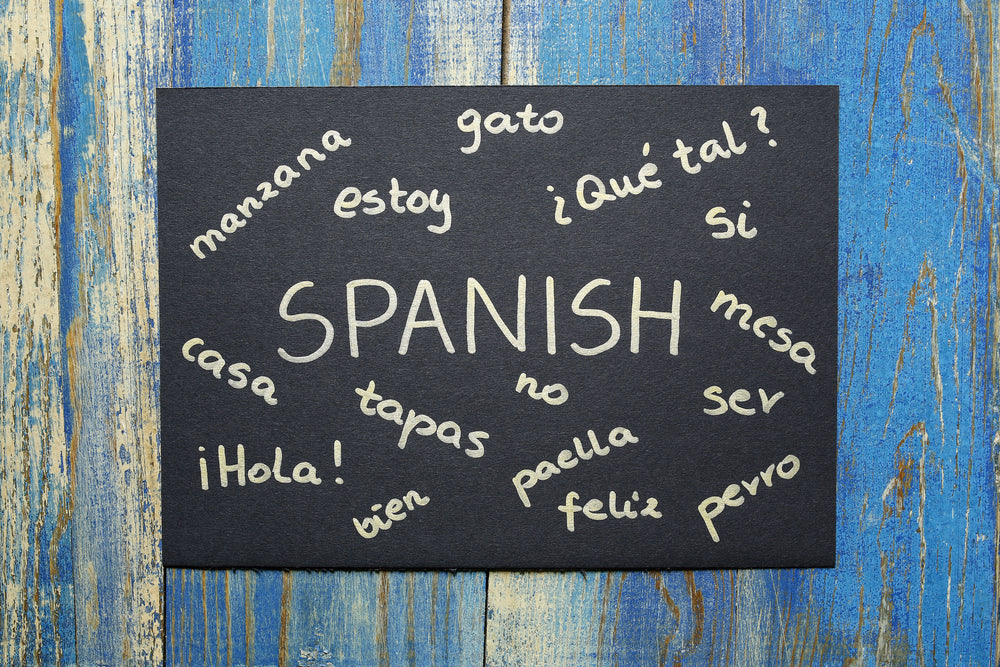 gato
manzana
¿Qué tal?
estoy
si
SPANISH
mesa
casa
no
ser
tapas
paella
¡Hola!
perro
feliz
bien